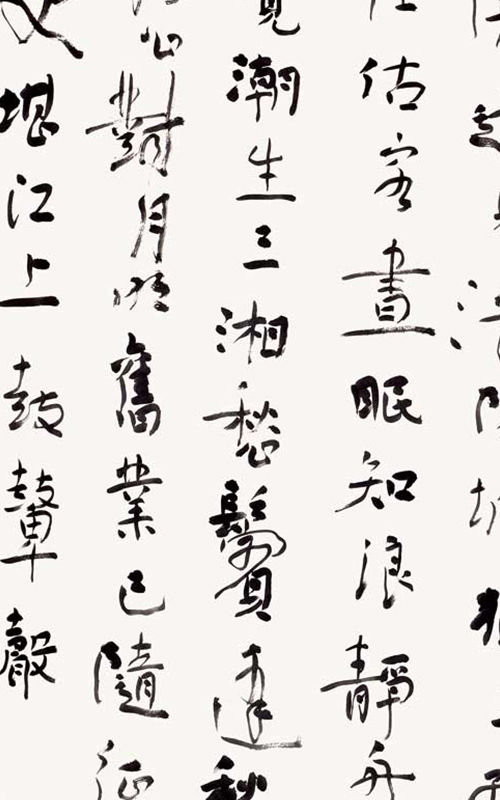 估客晝眠知浪靜舟
潮生三湘愁鬢逢秋
心對月明舊業已隨征
堪江上鼓鼙聲